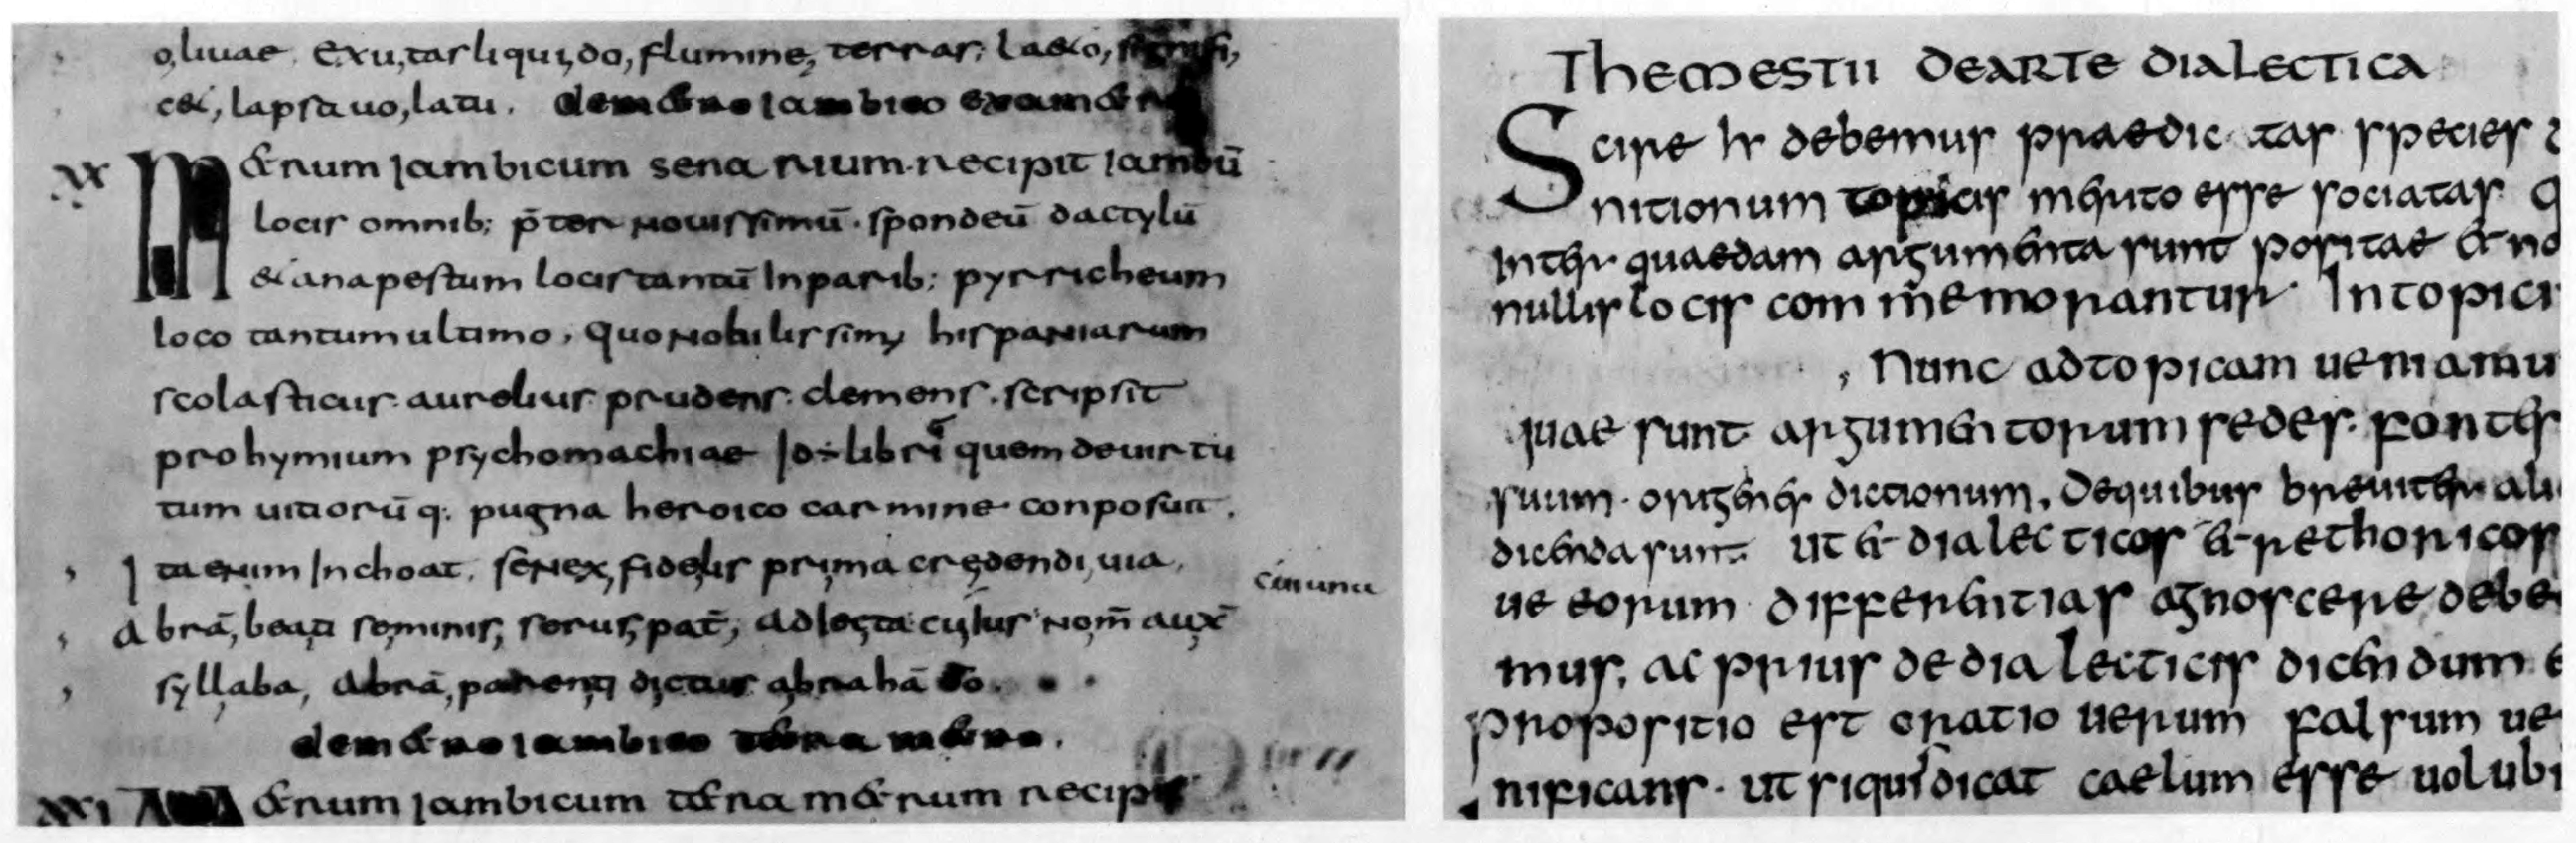 oliuae. Exutas liquido, flumine, terras; Lacio, signifi,
cet, lapsa uolatu. de metro iambico exametro
XX Metrum iambicum senarium recipit iambū
locis omnib; p̄ter nouissimū. spondeū dactylū
& anapestum locis tantū Inparib; pyrricheum
loco tantum ultimo, quo nobilissim; hispaniarum
scolasticus aurelius prudens clemens. scripsit
prohymium psychomachiae Id÷ libri quem de uirtu
tum uitiorū q; pugna heroico carmine conposuit.
Ita enim Inchoat. senex, fidelis prima credendi, uia,
Abrā, beati seminis, serus, pat̄, adiecta cuius nom̄ aux̄
syllaba, Abrā, parenti dictus abrahā dō.
de metro iambico tetrametro.
XXI Metrum iambicum tetrametrum recipit
Themestii de arte dialectica
Scire hr debemus praedictas species
nitionum topicis merito esse sociatas q
inter quaedam argumenta sunt positae & no
nullis locis commemorantur. In topici
, Nunc ad topicam ueniamu
quae sunt argumentorum sedes. fontes
suum. origenes dictionum. De quibus breuiter ali
dicenda sunt. ut & dialecticos & rethoricos
ue eorum differentias agnoscere debe
mus. ac prius de dialecticis dicendum e
propositio est oratio uerum falsum ue
nificans. ut siquis dicat caelum esse uolubi